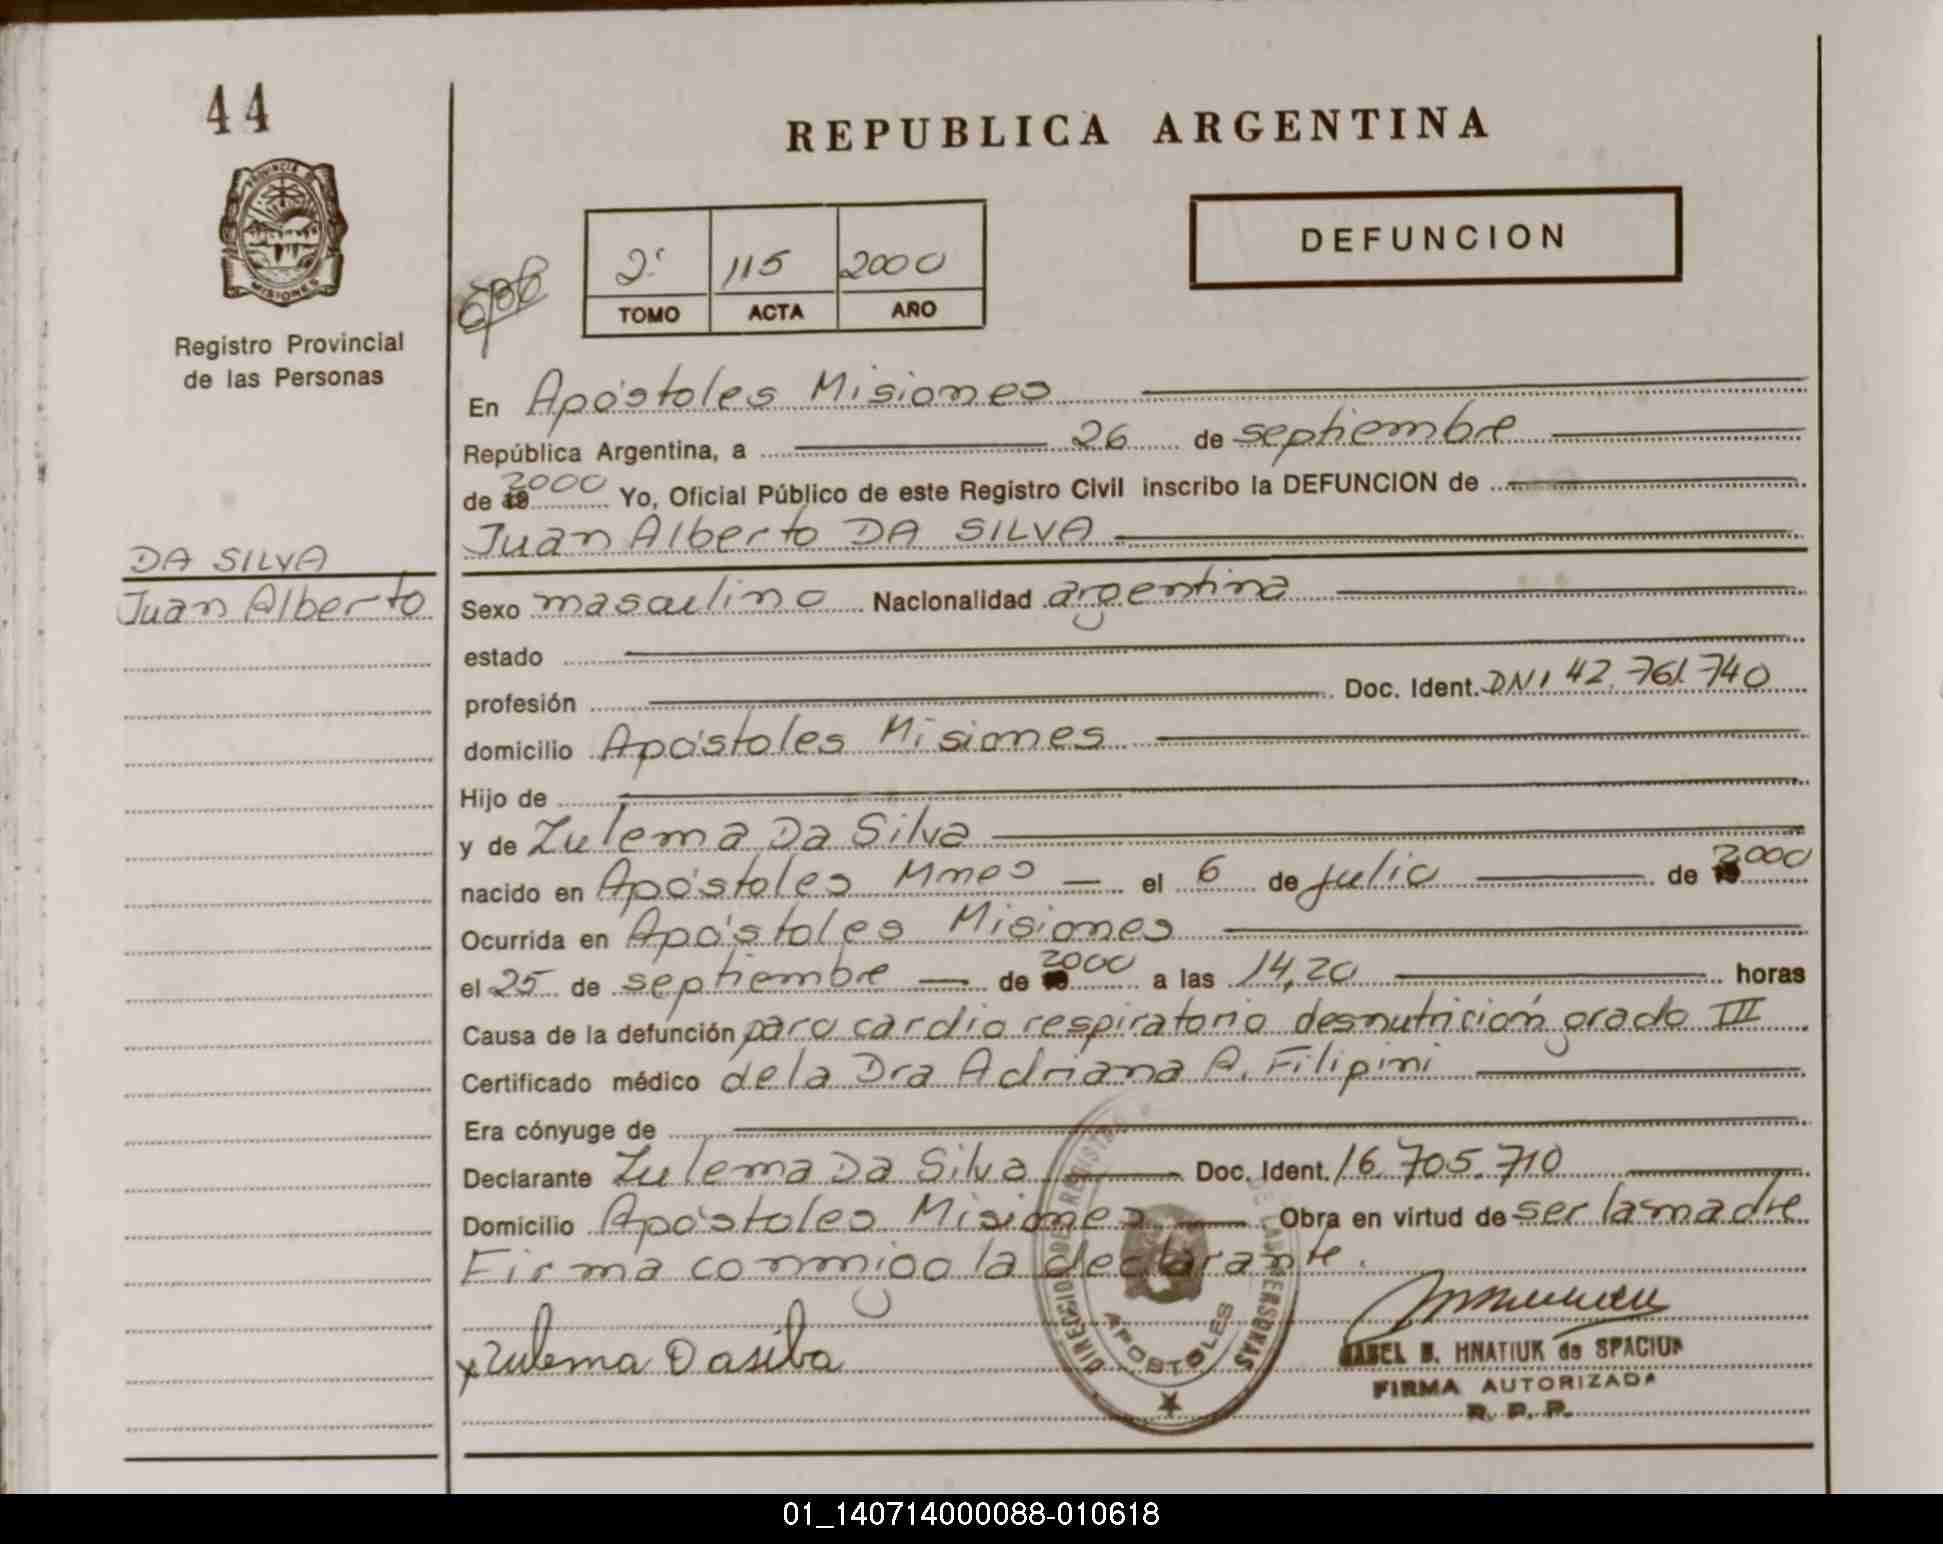 44
REPUBLICA ARGENTINA
PROVINCIA DE
MISIONES
Registro Provincial
de las Personas
2º 115 2000
TOMO ACTA AÑO
DEFUNCION
En Apóstoles Misiones
República Argentina, a 26 de septiembre
de 2000 Yo, Oficial Público de este Registro Civil inscribo la DEFUNCION de
Juan Alberto DA SILVA
DA SILVA
Juan Alberto
Sexo masculino Nacionalidad argentina
estado
profesión Doc. Ident. DNI 42.761.740
domicilio Apóstoles Misiones
Hijo de
y de Zulema Da Silva
nacido en Apóstoles Mnes el 6 de julio de 2000
Ocurrida en Apóstoles Misiones
el 25 de septiembre de 2000 a las 14,20 horas
Causa de la defunción paro cardio respiratorio desnutrición grado III
Certificado médico de la Dra Adriana A. Filipini
Era cónyuge de
Declarante Zulema Da Silva Doc. Ident. 16.705.710
Domicilio Apóstoles Misiones Obra en virtud de ser la madre
Firma conmigo la declarante.
x Zulema Dasilva
DIRECCION DE REGISTRO DE LAS PERSONAS
APOSTOLES
H. HNATIUK de SPACIUK
FIRMA AUTORIZADA
R. P. P.
01_140714000088-010618